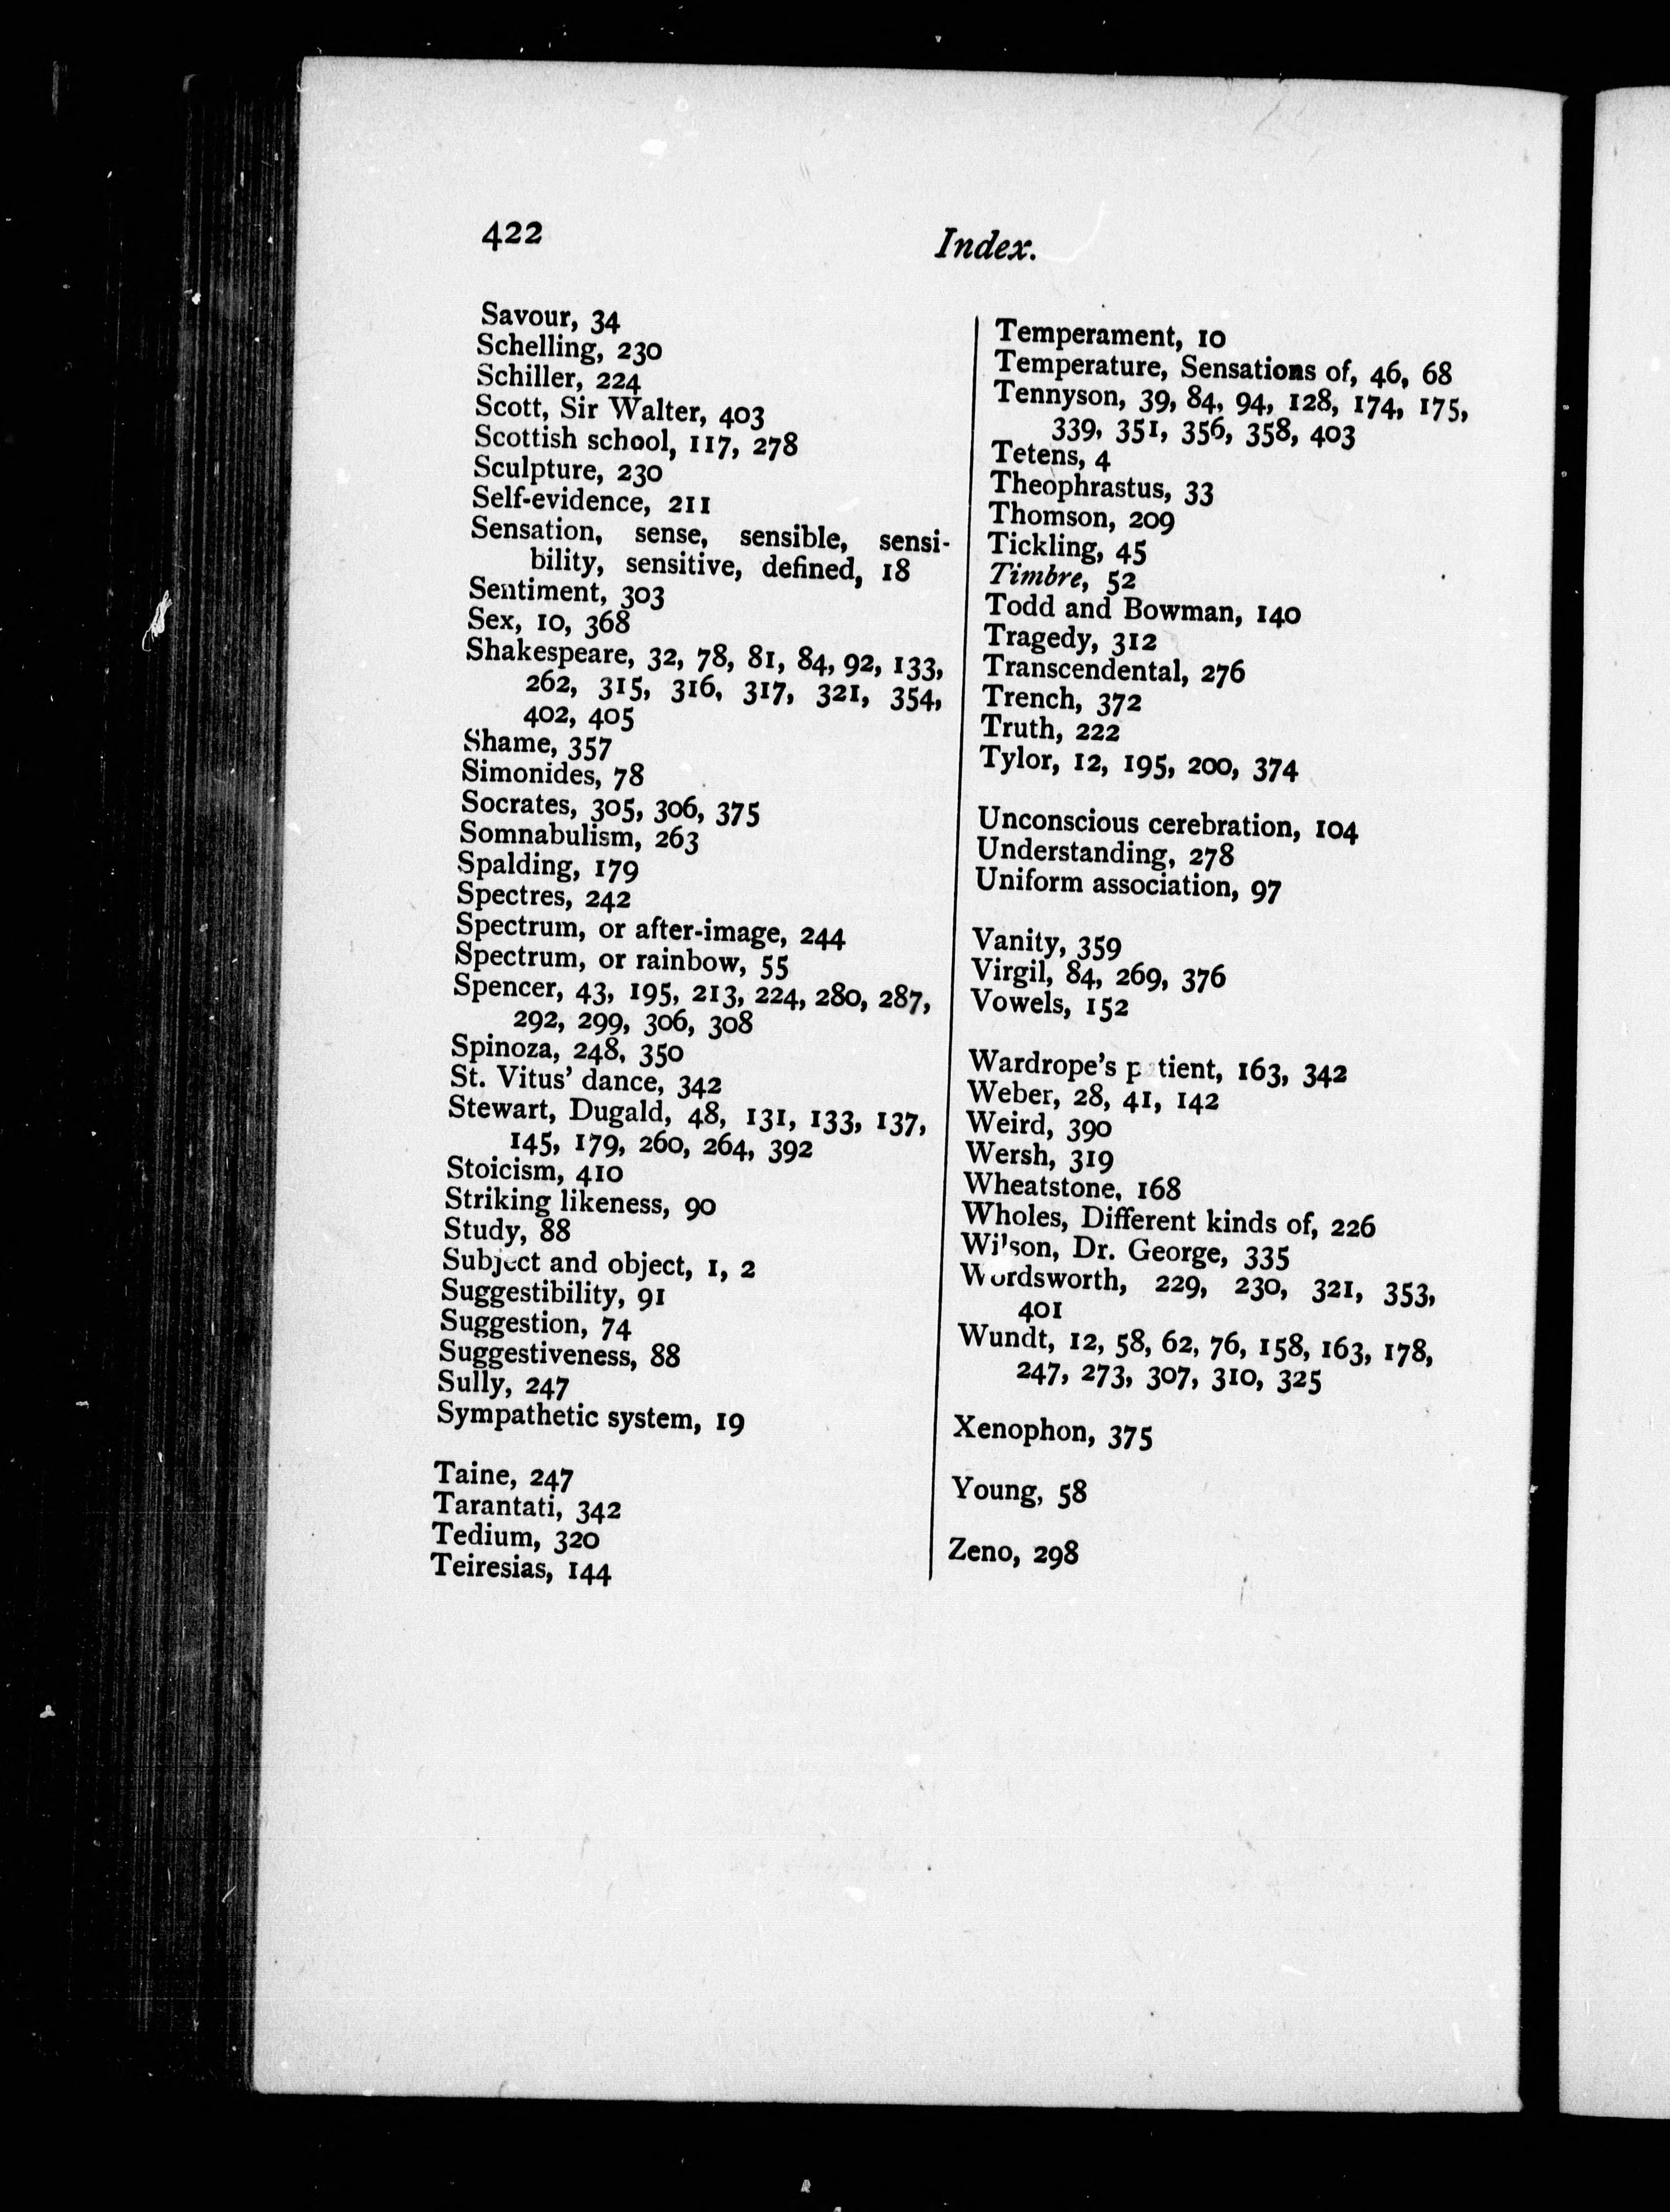 422
Index.
Savour, 34
Schelling, 230
Schiller, 224
Scott, Sir Walter, 403
Scottish school, 117, 278
Sculpture, 230
Self-evidence, 211
Sensation, sense, sensible, sensi-
bility, sensitive, defined, 18
Sentiment, 303
Sex, 10, 368
Shakespeare, 32, 78, 81, 84, 92, 133,
262, 315, 316, 317, 321, 354,
402, 405
Shame, 357
Simonides, 78
Socrates, 305, 306, 375
Somnabulism, 263
Spalding, 179
Spectres, 242
Spectrum, or after-image, 244
Spectrum, or rainbow, 55
Spencer, 43, 195, 213, 224, 280, 287,
292, 299, 306, 308
Spinoza, 248, 350
St. Vitus' dance, 342
Stewart, Dugald, 48, 131, 133, 137,
145, 179, 260, 264, 392
Stoicism, 410
Striking likeness, 90
Study, 88
Subject and object, 1, 2
Suggestibility, 91
Suggestion, 74
Suggestiveness, 88
Sully, 247
Sympathetic system, 19
Taine, 247
Tarantati, 342
Tedium, 320
Teiresias, 144
Temperament, 10
Temperature, Sensations of, 46, 68
Tennyson, 39, 84, 94, 128, 174, 175,
339, 351, 356, 358, 403
Tetens, 4
Theophrastus, 33
Thomson, 209
Tickling, 45
Timbre, 52
Todd and Bowman, 140
Tragedy, 312
Transcendental, 276
Trench, 372
Truth, 222
Tylor, 12, 195, 200, 374
Unconscious cerebration, 104
Understanding, 278
Uniform association, 97
Vanity, 359
Virgil, 84, 269, 376
Vowels, 152
Wardrope's patient, 163, 342
Weber, 28, 41, 142
Weird, 390
Wersh, 319
Wheatstone, 168
Wholes, Different kinds of, 226
Wilson, Dr. George, 335
Wordsworth, 229, 230, 321, 353,
401
Wundt, 12, 58, 62, 76, 158, 163, 178,
247, 273, 307, 310, 325
Xenophon, 375
Young, 58
Zeno, 298